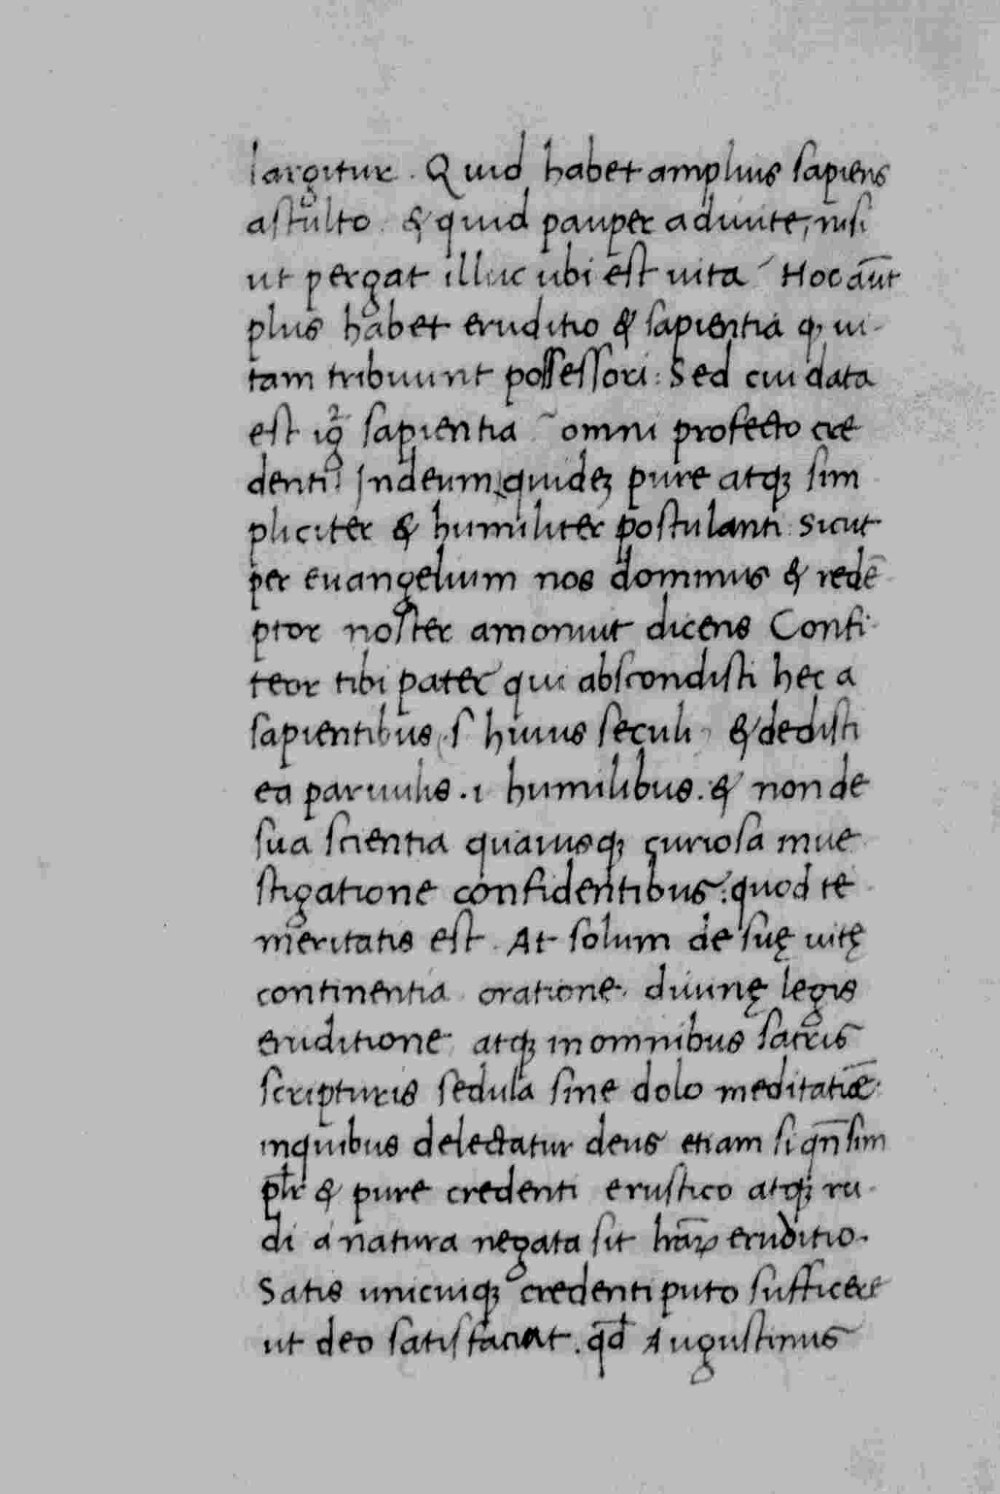 largitur. Quid habet amplius sapiens
astulto. & quid pauper a diuite, nisi
ut pergat illuc ubi est uita Hoc aut̄
plus habet eruditio & sapientia q, ui-
tam tribuunt possessori: Sed cui data
est sapientia omni profecto cre
denti Indeum quidez pure atqȝ sim
pliciter & humiliter postulanti sicut
per euangelium nos dominus & redē
ptor noster amonuit dicens Confi-
teor tibi pater qui abscondisti hec a
sapientibus s huius seculi & dedisti
ea paruulis. i humilibus. & non de
sua scientia quamsqȝ curiosa inue
stigatione confidentibus: quod te
meritatis est. At solum de suę uitę
continentia oratione. diuinę legis
eruditione atqȝ in omnibus sacris
scripturis sedula sine dolo meditatiōe:
inquibus delectatur deus etiam si qn̄ sim
plr̄ & pure credenti erustico atqȝ ru-
di a natura negata sit eruditio.
Satis unicuiqȝ credenti puto sufficere
ut deo satisfaciat. qd̄ Augustinus